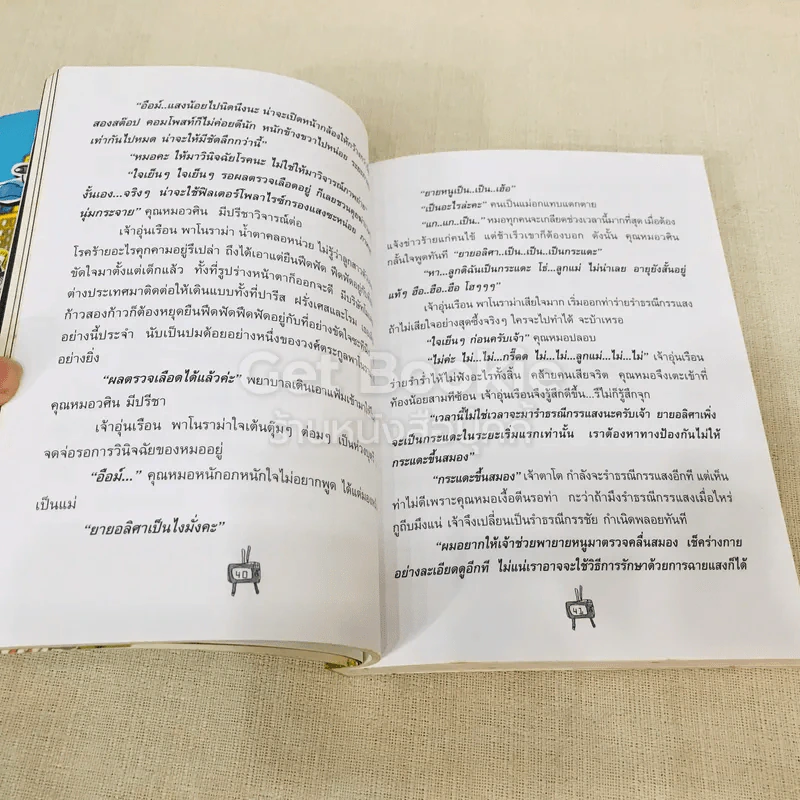 “อืือม์..แสงน้อยไปนิดนึงนะ น่าจะเปิดหน้ากล้องได้กว้าง
สองสต๊อป คอมโพสท์ก็ไม่ค่อยดีนัก หนักข้างขวาไปหน่อย
เท่ากันไปหมด น่าจะให้มีชัดลึกกว่านี้”
“หมอคะ ให้มาวินิจฉัยโรคนะ ไม่ใช่ให้มาวิจารณ์ภาพถ่าย
“ใจเย็นๆ ใจเย็นๆ รอผลตรวจเลือดอยู่ ก็เลยชวนคุย
งั้นเอง...จริงๆ น่าจะใช้ฟิลเตอร์โพลาไรซ์กรองแสงซะหน่อย
นุ่มกระจาย” คุณหมอวศิน มีปรีชาวิจารณ์ต่อ
เจ้าอุ่นเรือน พาโนราม่า น้ำตาคลอหน่วย ไม่รู้ว่าลูกสาว
โรคร้ายอะไรคุกคามอยู่รึเปล่า ถึงได้เอาแต่ยืนฟืดฟัด ฟืดฟัดอยู่
ขัดใจมาตั้งแต่เด็กแล้ว ทั้งที่รูปร่างหน้าตาก็ออกจะดี มีบริษัท
ต่างประเทศมาติดต่อให้เดินแบบทั้งที่ปารีส ฝรั่งเศสและโรม
ก้าวสองก้าวก็ต้องหยุดยืนฟืดฟัดฟืดฟัดอยู่กับที่อย่างขัดใจ
อย่างนี้ประจำ นับเป็นปมด้อยอย่างหนึ่งของวงศ์ตระกูล
อย่างยิ่ง
“ผลตรวจเลือดได้แล้วค่ะ” พยาบาลเดินเอาแฟ้มเข้ามา
คุณหมอวศิน มีปรีชา
เจ้าอุ่นเรือน พาโนราม่าใจเต้นตุ๊มๆ ต่อมๆ เป็นห่วง
จดจ่อรอการวินิจฉัยของหมออยู่
“อืือม์...” คุณหมอหนักอกหนักใจไม่อยากพูด ได้แต่
เป็นแม่
“ยายอลิศาเป็นไงมั่งคะ”
40
“ยายหนูเป็น..เป็น..เฮ้อ”
“เป็นอะไรล่ะคะ” คนเป็นแม่อกแทบแตกตาย
“แก..แก..เป็น..” หมอทุกคนจะเกลียดช่วงเวลานี้มากที่สุด เมื่อต้อง
แจ้งข่าวร้ายแก่คนไข้ แต่ช้าเร็วเขาก็ต้องบอก ดังนั้น คุณหมอวศิน
กลั้นใจพูดทันที “ยายอลิศา..เป็น..เป็น..เป็นกระแดะ”
“หา...ลูกดิฉันเป็นกระแดะ โธ่...ลูกแม่ ไม่น่าเลย อายุยังสั้นอยู่
แท้ๆ ฮือ..ฮือ..ฮือ โฮๆๆๆ”
เจ้าอุ่นเรือน พาโนราม่าเสียใจมาก เริ่มออกท่าร่ายรำธรณีกรรแสง
ถ้าไม่เสียใจอย่างสุดซึ้งจริงๆ ใครจะไปทำได้ จะบ้าเหรอ
“ใจเย็นๆ ก่อนครับเจ้า” คุณหมอปลอบ
“ไม่ค่ะ ไม่...ไม่...กรี๊ดด ไม่...ไม่...ลูกแม่...ไม่...ไม่” เจ้าอุ่นเรือน
ร่ายรำร่ำไห้ไม่ฟังอะไรทั้งสิ้น คล้ายคนเสียจริต คุณหมอจึงเตะเข้าที่
ท้องน้อยสามทีซ้อน เจ้าอุ่นเรือนจึงรู้สึกดีขึ้น...รึไม่ก็รู้สึกจุก
“เวลานี้ไม่ใช่เวลาจะมารำธรณีกรรแสงนะครับเจ้า ยายอลิศาเพิ่ง
จะเป็นกระแดะในระยะเริ่มแรกเท่านั้น เราต้องหาทางป้องกันไม่ให้
กระแดะขึ้นสมอง”
“กระแดะขึ้นสมอง” เจ้าตาโต กำลังจะรำธรณีกรรแสงอีกที แต่เห็น
ท่าไม่ดีเพราะคุณหมอเงื้อตีนรอท่า กะว่าถ้ามึงรำธรณีกรรแสงเมื่อไหร่
กูถีบมึงแน่ เจ้าจึงเปลี่ยนเป็นรำธรณีกรรชัย กำเนิดพลอยทันที
“ผมอยากให้เจ้าช่วยพายายหนูมาตรวจคลื่นสมอง เช็คร่างกาย
อย่างละเอียดดูอีกที ไม่แน่เราอาจจะใช้วิธีการรักษาด้วยการฉายแสงก็ได้
41
Get Bookie
ร้านหนังสือบุ๊คกี้